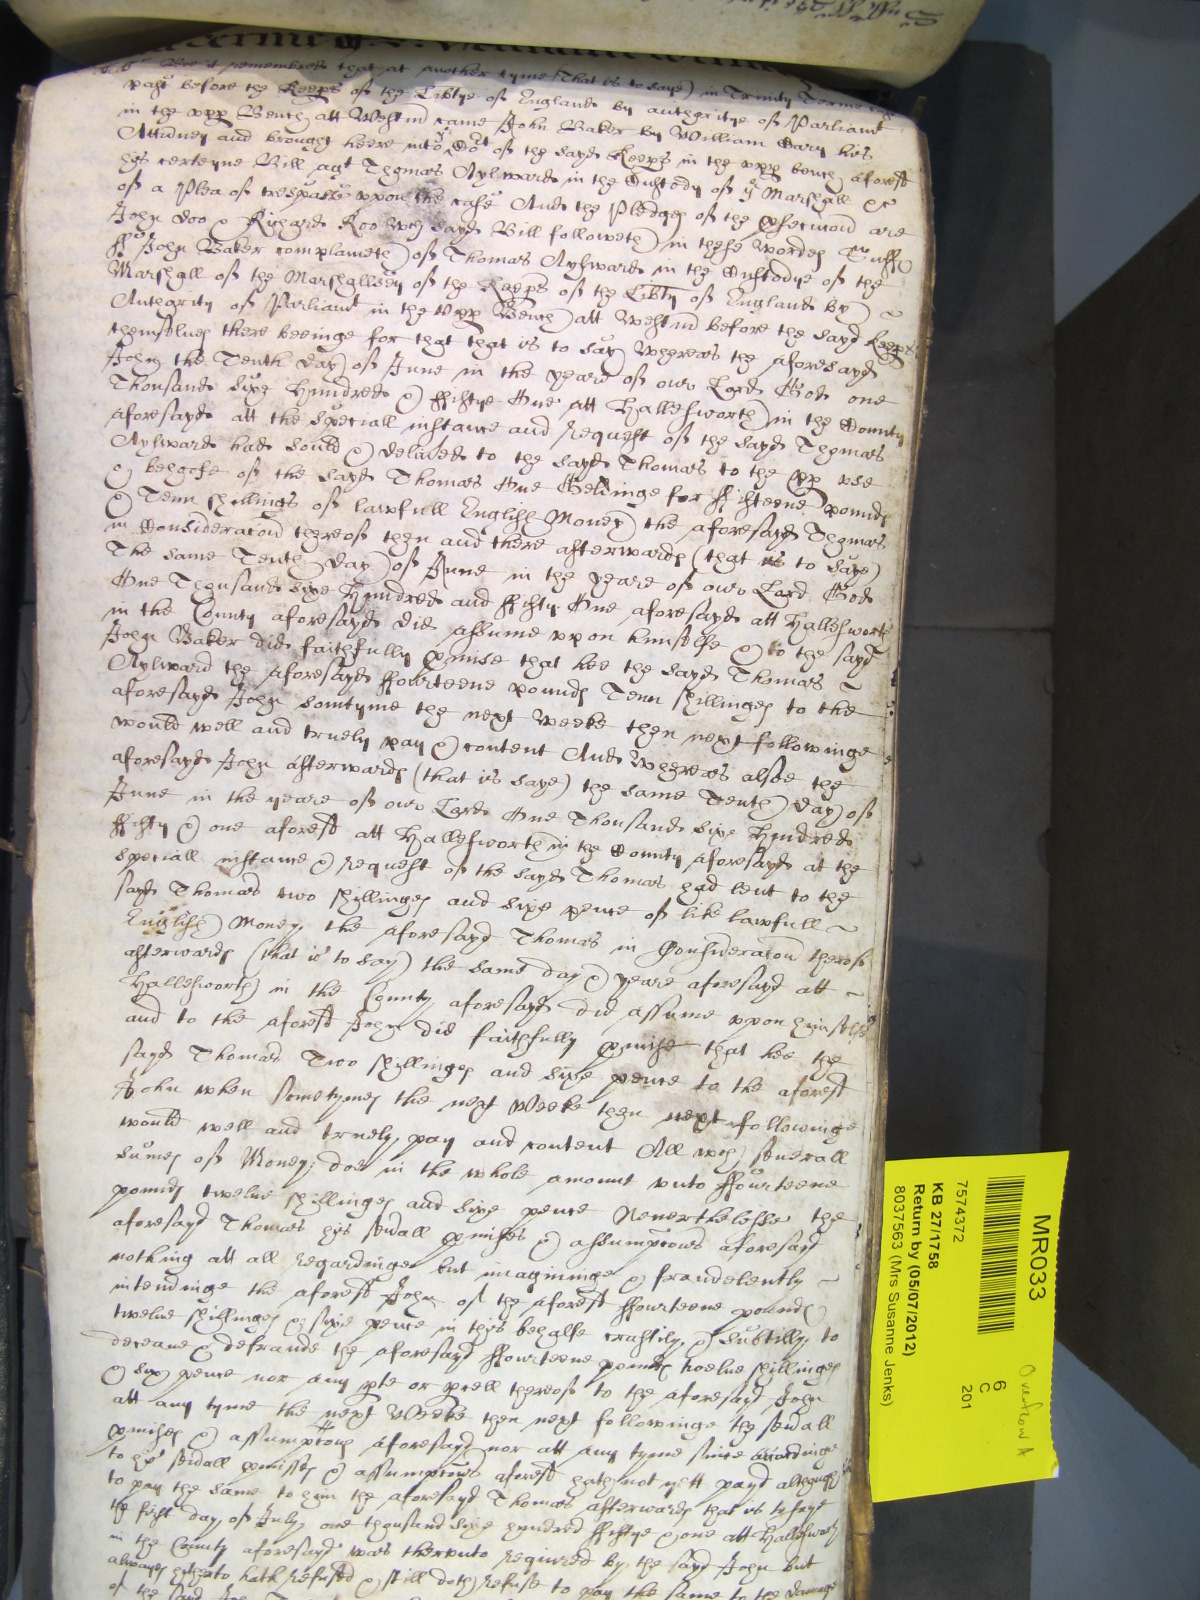 Bee it remembred that at another tyme (that is to saye) in Trinity Terme last
past before the Keeps of the Libtye of England by authoritye of Parliamt
in the vpp Bench att Westmr came John Baker by William his
Attorney and brought heere into Cort of the sayd Keeps in the vpp bench aforesd
his certeyne Bill agt Thomas Aylward in the Custody of ye Marshall &c
of a Plea of trespasse vpon the case And the Pledges of the psecucon are
John Doo & Richard Roo wch sayd Bill followeth in these wordes Suff
ss John Baker complaineth of Thomas Aylward in the Custodye of the
Marshall of the Marshallsey of the Keeps of the Libty of England by
Authority of Parliamt in the Vpp Bench att Westmr before the sayd Keeps
themselues there beeinge for that that is to say Whereas the aforesayd
John the Tenth day of June in the yeare of our Lord God one
Thousand Sixe Hundred & ffiftye One att Hallesworth in the County
aforesayd att the speciall instance and request of the sayd Thomas
Aylward had sould & deliued to the sayd Thomas to the pp vse
& behoofe of the sayd Thomas One Geldinge for ffifteene pounds
& Tenn shillings of lawfull English Money the aforesayd Thomas
in Consideracon thereof then and there afterwards (that is to saye)
The same Tenth day of June in the yeare of our Lord God
One Thousand Sixe Hundred and ffifty One aforesayd att Hallesworth
in the County aforesayd did assume vpon himselfe & to the sayd
John Baker did faithfully pmise that hee the sayd Thomas
Aylward the aforesayd ffourteene pounds Tenn shillinges to the
aforesayd John somtyme the next Weeke then next followinge
would well and truely pay & content And Whereas alsoe the
aforesayd John afterwards (that is saye) the same Tenth day of
June in the yeare of our Lord One Thousand Sixe Hundred
ffifty & one aforesd att Hallesworth in the County aforesayd at the
speciall instance & request of the sayd Thomas had lent to the
sayd Thomas two shillinges and sixe pence of like lawfull
English Money, the aforesayd Thomas in Consideracon thereof
afterwards (that is to say) the same day & yeare aforesayd att
Hallesworth in the County aforesayd did assume vpon himselfe
and to the aforesd John did faithfully pmise that hee the
sayd Thomas Two shillinges and Sixe pence to the aforesd
John when sometymes the next Weeke then next followinge
would well and truely pay and content All wch seuerall
Sumes of Money doe in the whole amount vnto ffourteene
pounds twelue shillinges and sixe pence Neuerthelesse the
aforesayd Thomas his seuall pmises & assumpcons aforesayd
nothing att all regardinge but imagininge & fraudelently
intendinge the aforesd John of the aforesd ffourteene pounds
twelue shillinges & sixe pence in this behalfe craftily & subtilly to
deceaue & defraude the aforesayd ffourteene pounds twelue shillinges
& sixe pence nor any pte or pcell thereof to the aforesayd John
att any tyme the next Weeke then next followinge the seuall
pmises & assumpcons aforesayd nor att any tyme since accordinge
to his seuall pmisses & assumpcons aforesd hath not yett payd although
to pay the same to him the aforesayd Thomas afterwards that is to saye
the first day of July one thousand sixe hundred ffiftye & one att Hallesworth
in the County aforesayd was therevnto required by the sayd John but
alwayes hitherto hath refused & still doth refuse to pay the same to the damage
of the said John
MR033
6
C
201
7574372
KB 27/1758
Return by (05/07/2012)
8037563 (Mrs Susanne Jenks)
Overflow A